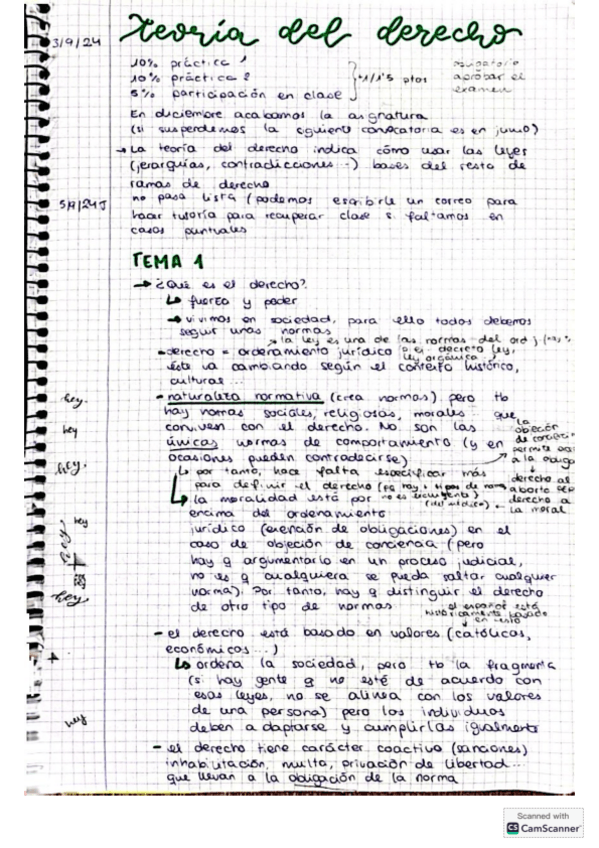 3/9/24
Teoría del derecho
10% práctica 1
10% práctica 2
5% participación en clase
+1/1'5 ptos
obligatorio
aprobar el
examen
En diciembre acabamos la asignatura
(si suspendemos la siguiente convocatoria es en junio)
→ La teoría del derecho indica cómo usar las leyes
(jerarquías, contradicciones...) bases del resto de
ramas de derecho
no pasa lista (podemos escribirle un correo para
hacer tutoría para recuperar clase si faltamos en
casos puntuales
TEMA 1
→ ¿Qué es el derecho?
↳ fuerza y poder
→ vivimos en sociedad, para ello todos debemos
seguir unas normas
→ la ley es una de las normas del ord. j
- derecho = ordenamiento jurídico o el decreto ley,
ley orgánica
éste va cambiando según el contexto histórico,
cultural...
- naturaleza normativa (crea normas) pero tb
hay normas sociales, religiosas, morales... que
conviven con el derecho. No son las
únicas normas de comportamiento (y en
ocasiones pueden contradecirse)
La
objeción
de
permite
a la
derecho al
aborto
derecho a
la moral
↳ por tanto, hace falta especificar más
para definir el derecho (pq hay + tipos de normas)
↳ la moralidad está por
encima del ordenamiento
jurídico (exención de obligaciones) en el
caso de objeción de conciencia (pero
hay q argumentarlo en un proceso judicial,
no es q cualquiera se pueda saltar cualquier
norma). Por tanto, hay q distinguir el derecho
de otro tipo de normas
el español está
históricamente basado
en esto
- el derecho está basado en valores (católicos,
económicos...)
↳ ordena la sociedad, pero tb la fragmenta
(si hay gente q no esté de acuerdo con
esas leyes, no se alinea con los valores
de una persona) pero los individuos
deben adaptarse y cumplirlas igualmente
- el derecho tiene carácter coactivo (sanciones)
inhabilitación, multa, privación de libertad...
que llevan a la obligación de la norma
5/9/24 J
hey.
hey
hey.
hey
hey
hey
Scanned with
CS CamScanner